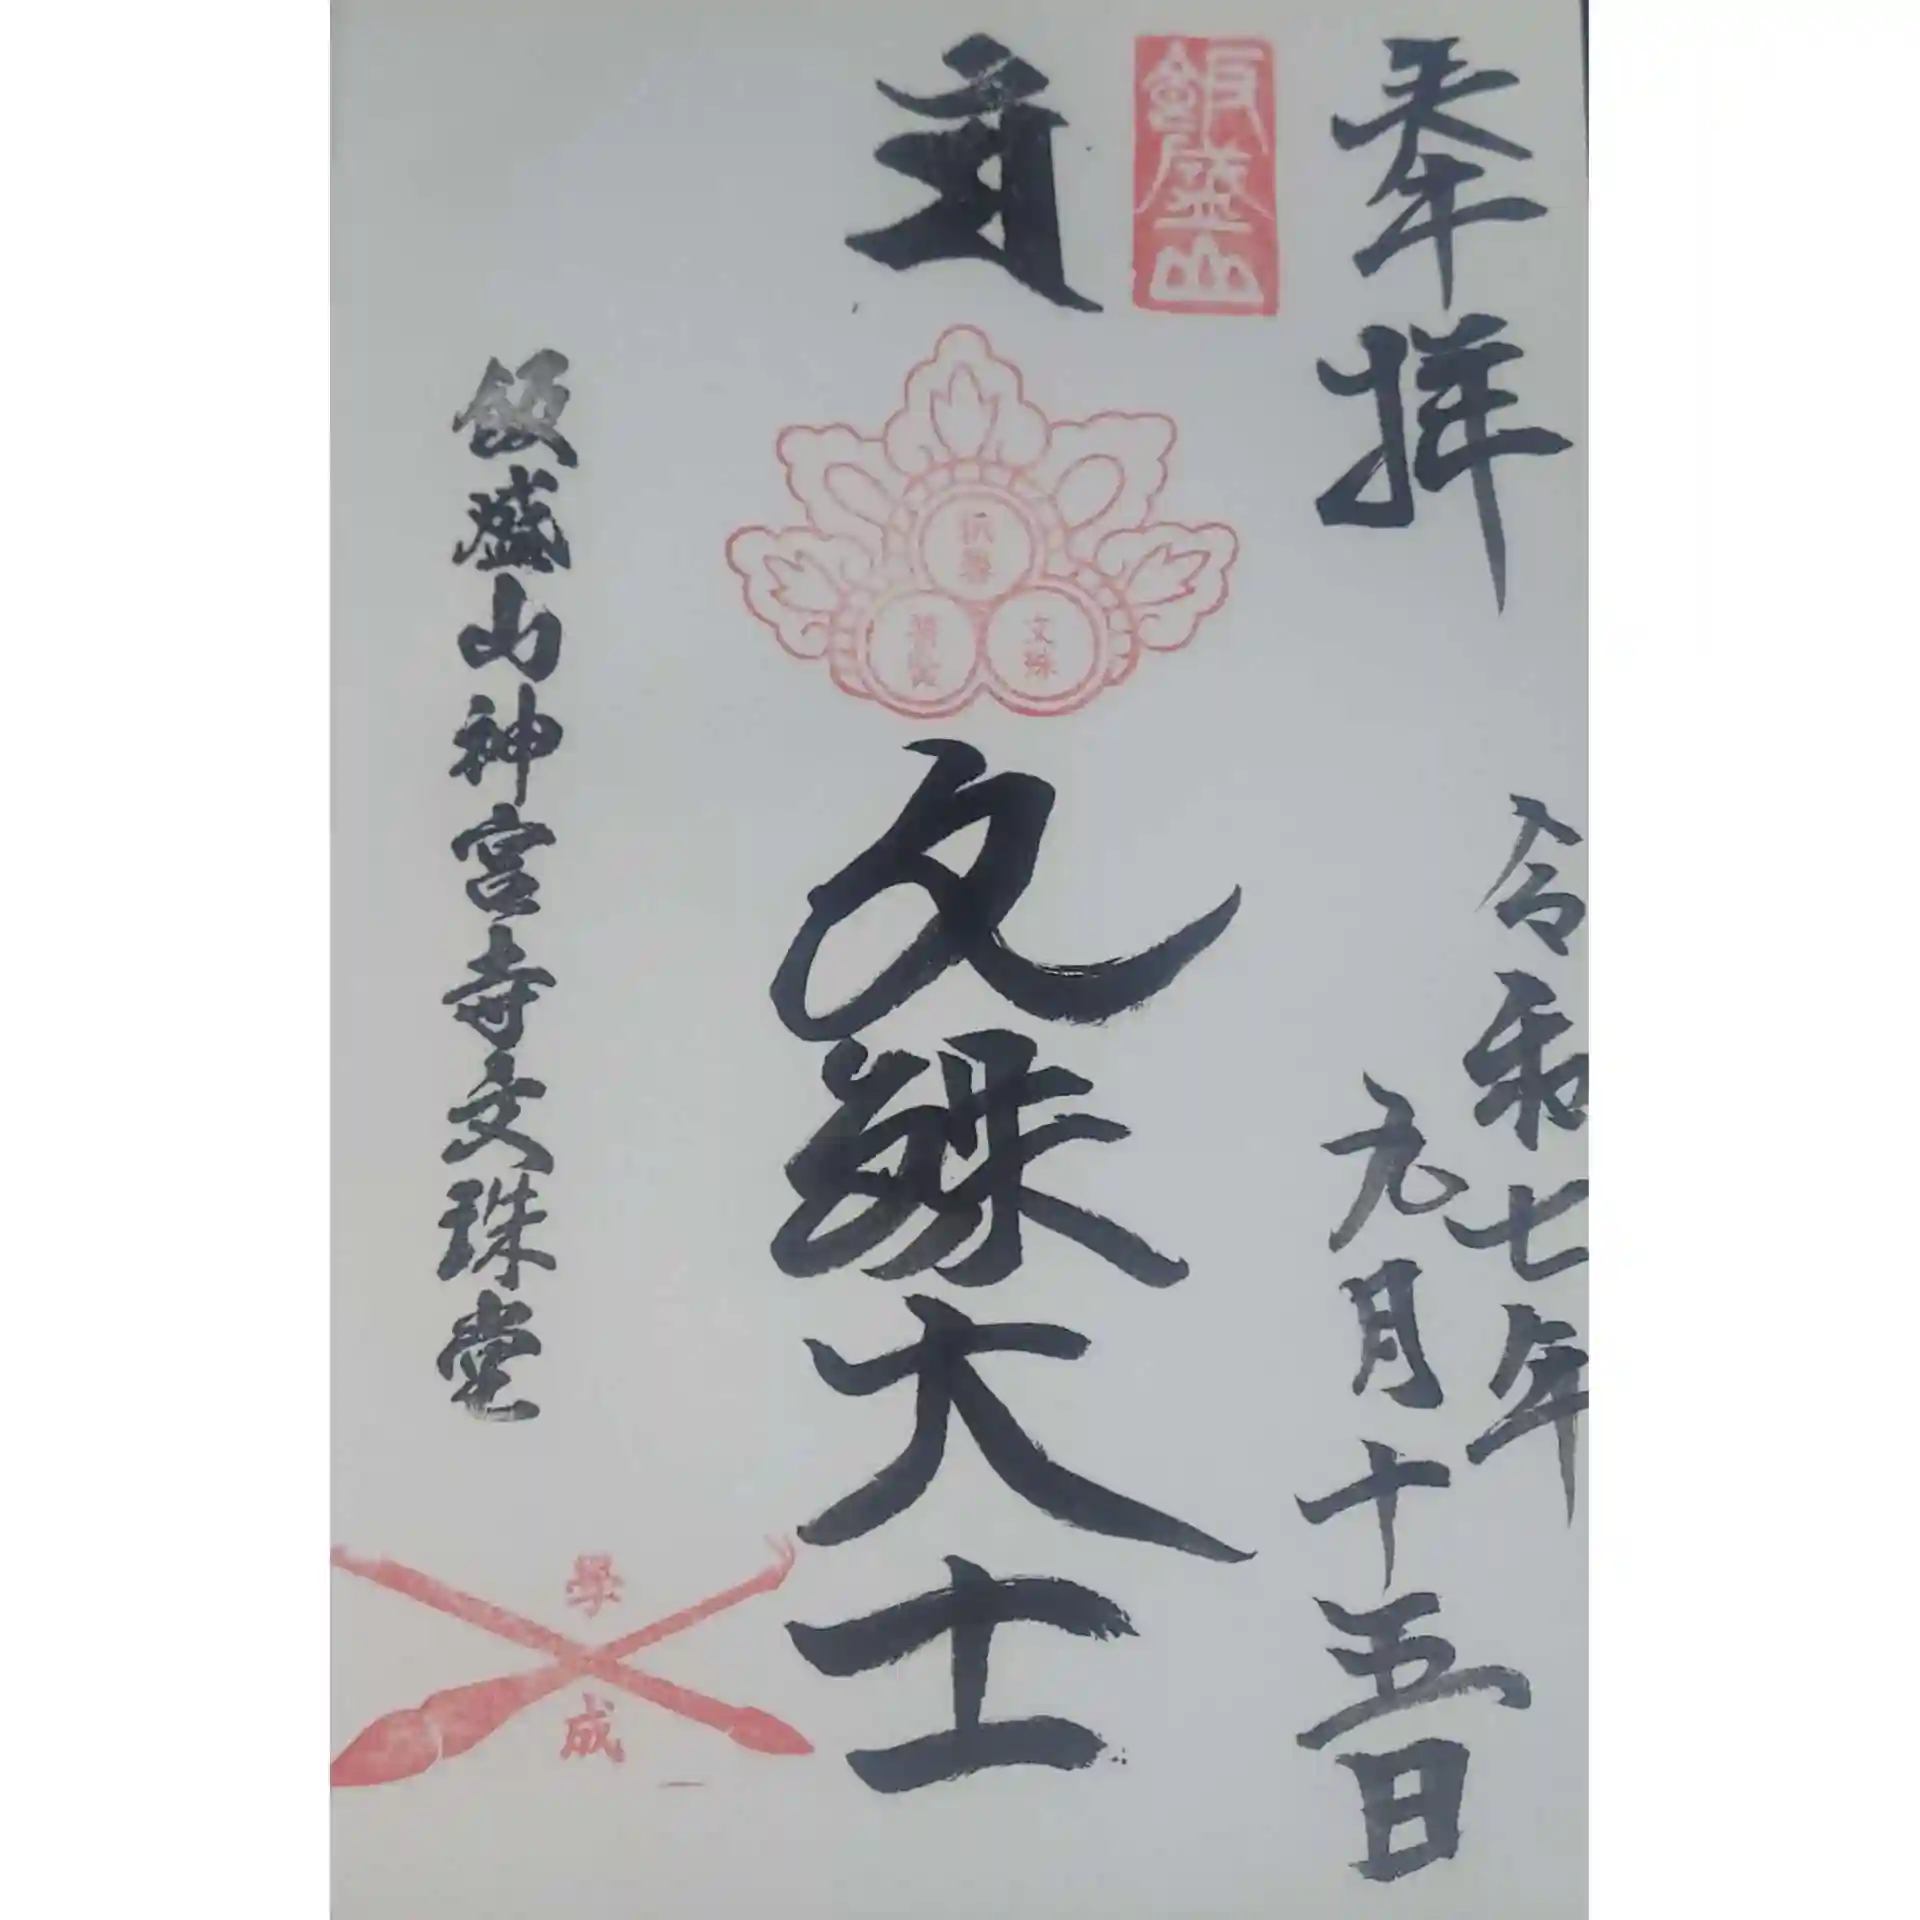 奉拝
令和七年
九月十五日
飯盛山
釈尊
文殊
普賢
文殊大士
飯盛山神宮寺文珠堂
學
成